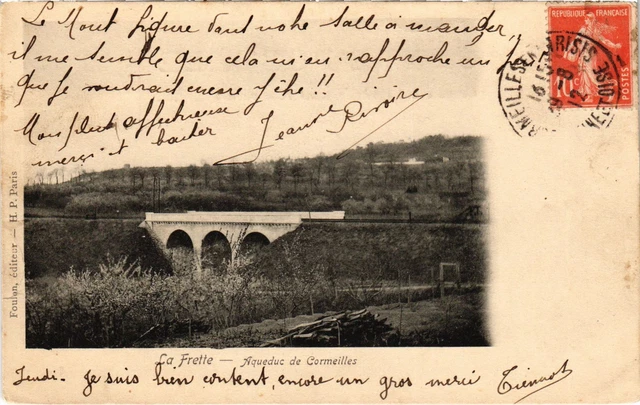 Le Mont figure dans notre salle à manger,
il me semble que cela m'en rapproche un peu
que je voudrait encore y être !!
Mon plus affectueux
merci et baiser
Jeanne Rivoire
REPUBLIQUE FRANÇAISE
10c
POSTES
CORMEILLES EN PARISIS
SEINE-ET-OISE
Foulon, éditeur — H. P. Paris
La Frette — Aqueduc de Cormeilles
Jeudi. Je suis bien content, encore un gros merci